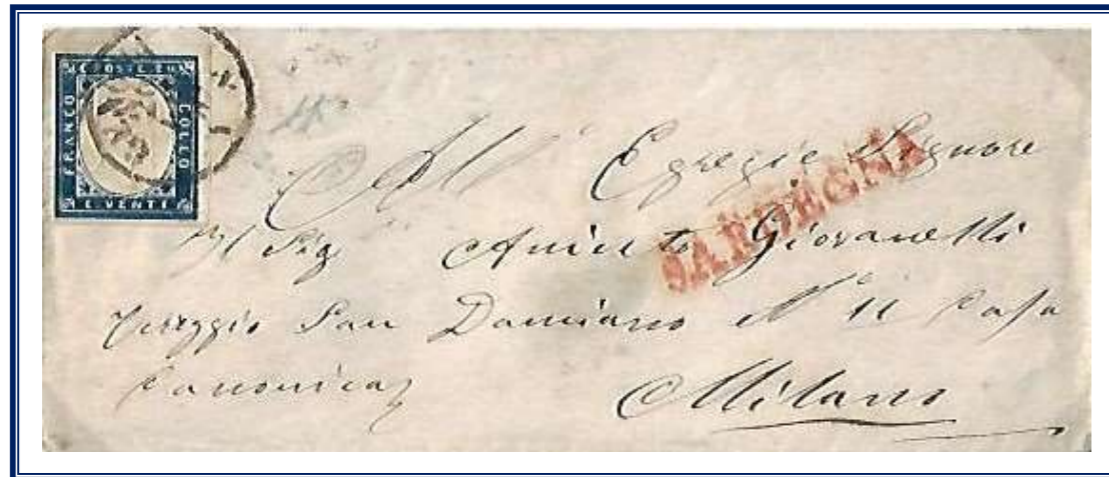 C. POSTE 20
FRANCO
COLLO
E VENTI
All' Egregio Signore
Il Sig Aniceto Giovanelli
SARDEGNA
San Damiano N° 11 Casa
Canonica
Milano